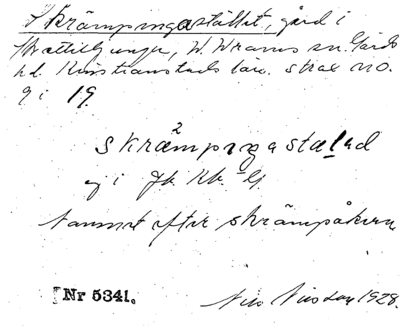 Skrämpingastället, gård i
Skättilljunga, W. Wrams sn. Gärds
hd. Kristianstads län. strax no.
9 i 19.
skrä²mpıngastalad
ej i Jb. Kb. Gj.
namnet efter skrämpåkern
Nr 5341.
1928.